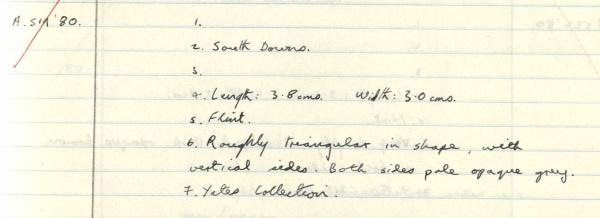 A. SM '80. 1.
2. South Downs.
3.
4. Length: 3.8 cms. Width: 3.0 cms.
5. Flint.
6. Roughly triangular in shape, with
vertical sides. Both sides pale opaque grey.
7. Yates Collection.